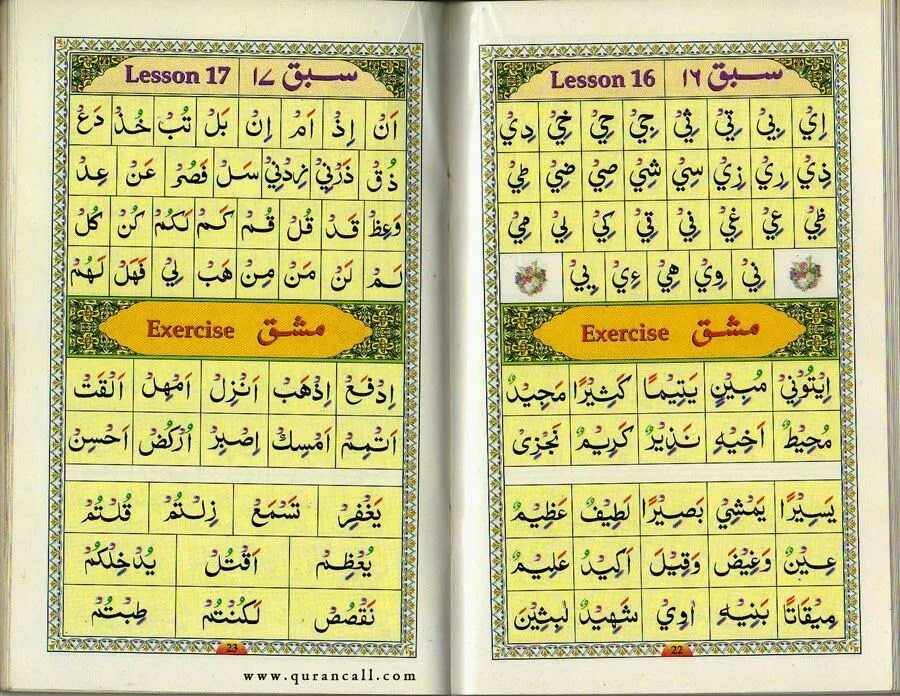 Lesson 16 سبق ١٦
اِيْ بِيْ تِيْ ثِيْ جِيْ حِيْ خِيْ دِيْ
ذِيْ رِيْ زِيْ سِيْ شِيْ صِيْ ضِيْ طِيْ
ظِيْ عِيْ غِيْ فِيْ قِيْ كِيْ لِيْ مِيْ
نِيْ وِيْ هِيْ ءِيْ يِيْ
Exercise مشق
اِيْتُوْنِيْ مُبِيْنٍ يَتِيْمًا كَثِيْرًا مَجِيْدٌ
مُحِيْطٌ اَخِيْهِ نَذِيْرٌ كَرِيْمٌ نَجْزِىْ
يَسِيْرًا يَمْشِيْ بَصِيْرًا لَطِيْفٌ عَظِيْمٌ
عِيْنٌ وَغِيْضَ وَقِيْلَ اَكِيْدُ عَلِيْمٌ
مِيْقَاتًا بَنِيْهِ اٰوِيْ شَهِيْدٌ لٰبِثِيْنَ
22
Lesson 17 سبق ١٧
اَنْ اِذْ اَمْ اِنْ بَلْ تُبْ خُذْ دَعْ
ذُقْ ذَرْنِيْ زِدْنِيْ سَلْ فَصُرْ عَنْ عِدْ
وَعِظْ قَدْ قُلْ قُمْ كَمْ لَكُمْ كُنْ كُلْ
لَمْ لَنْ مَنْ مِنْ هَبْ لِيْ فَهَلْ لَهُمْ
Exercise مشق
اِدْفَعْ اِذْهَبْ اَنْزِلْ اَمْهِلْ اَلْقَتْ
اَتْمِمْ اَمْسِكْ اِصْبِرْ اُرْكُضْ اَحْسِنْ
يَغْفِرْ تَسْمَعْ زِلْتُمْ قُلْتُمْ
يُعْظِمْ اَقْتُلْ يُدْخِلْكُمْ
نَقْصُصْ لَكُنْتُمْ طِبْتُمْ
23
www.qurancall.com